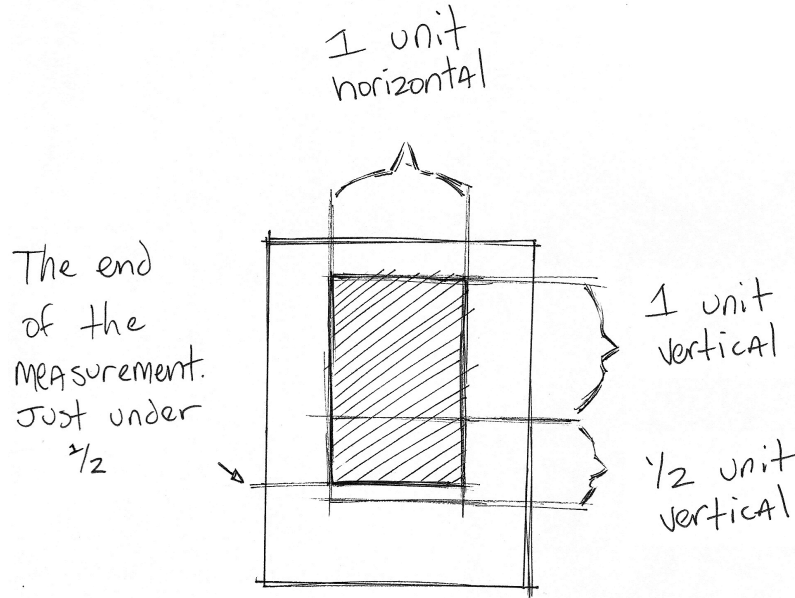 1 unit
horizontal
The end
of the
measurement.
Just under
1/2
1 unit
vertical
1/2 unit
vertical